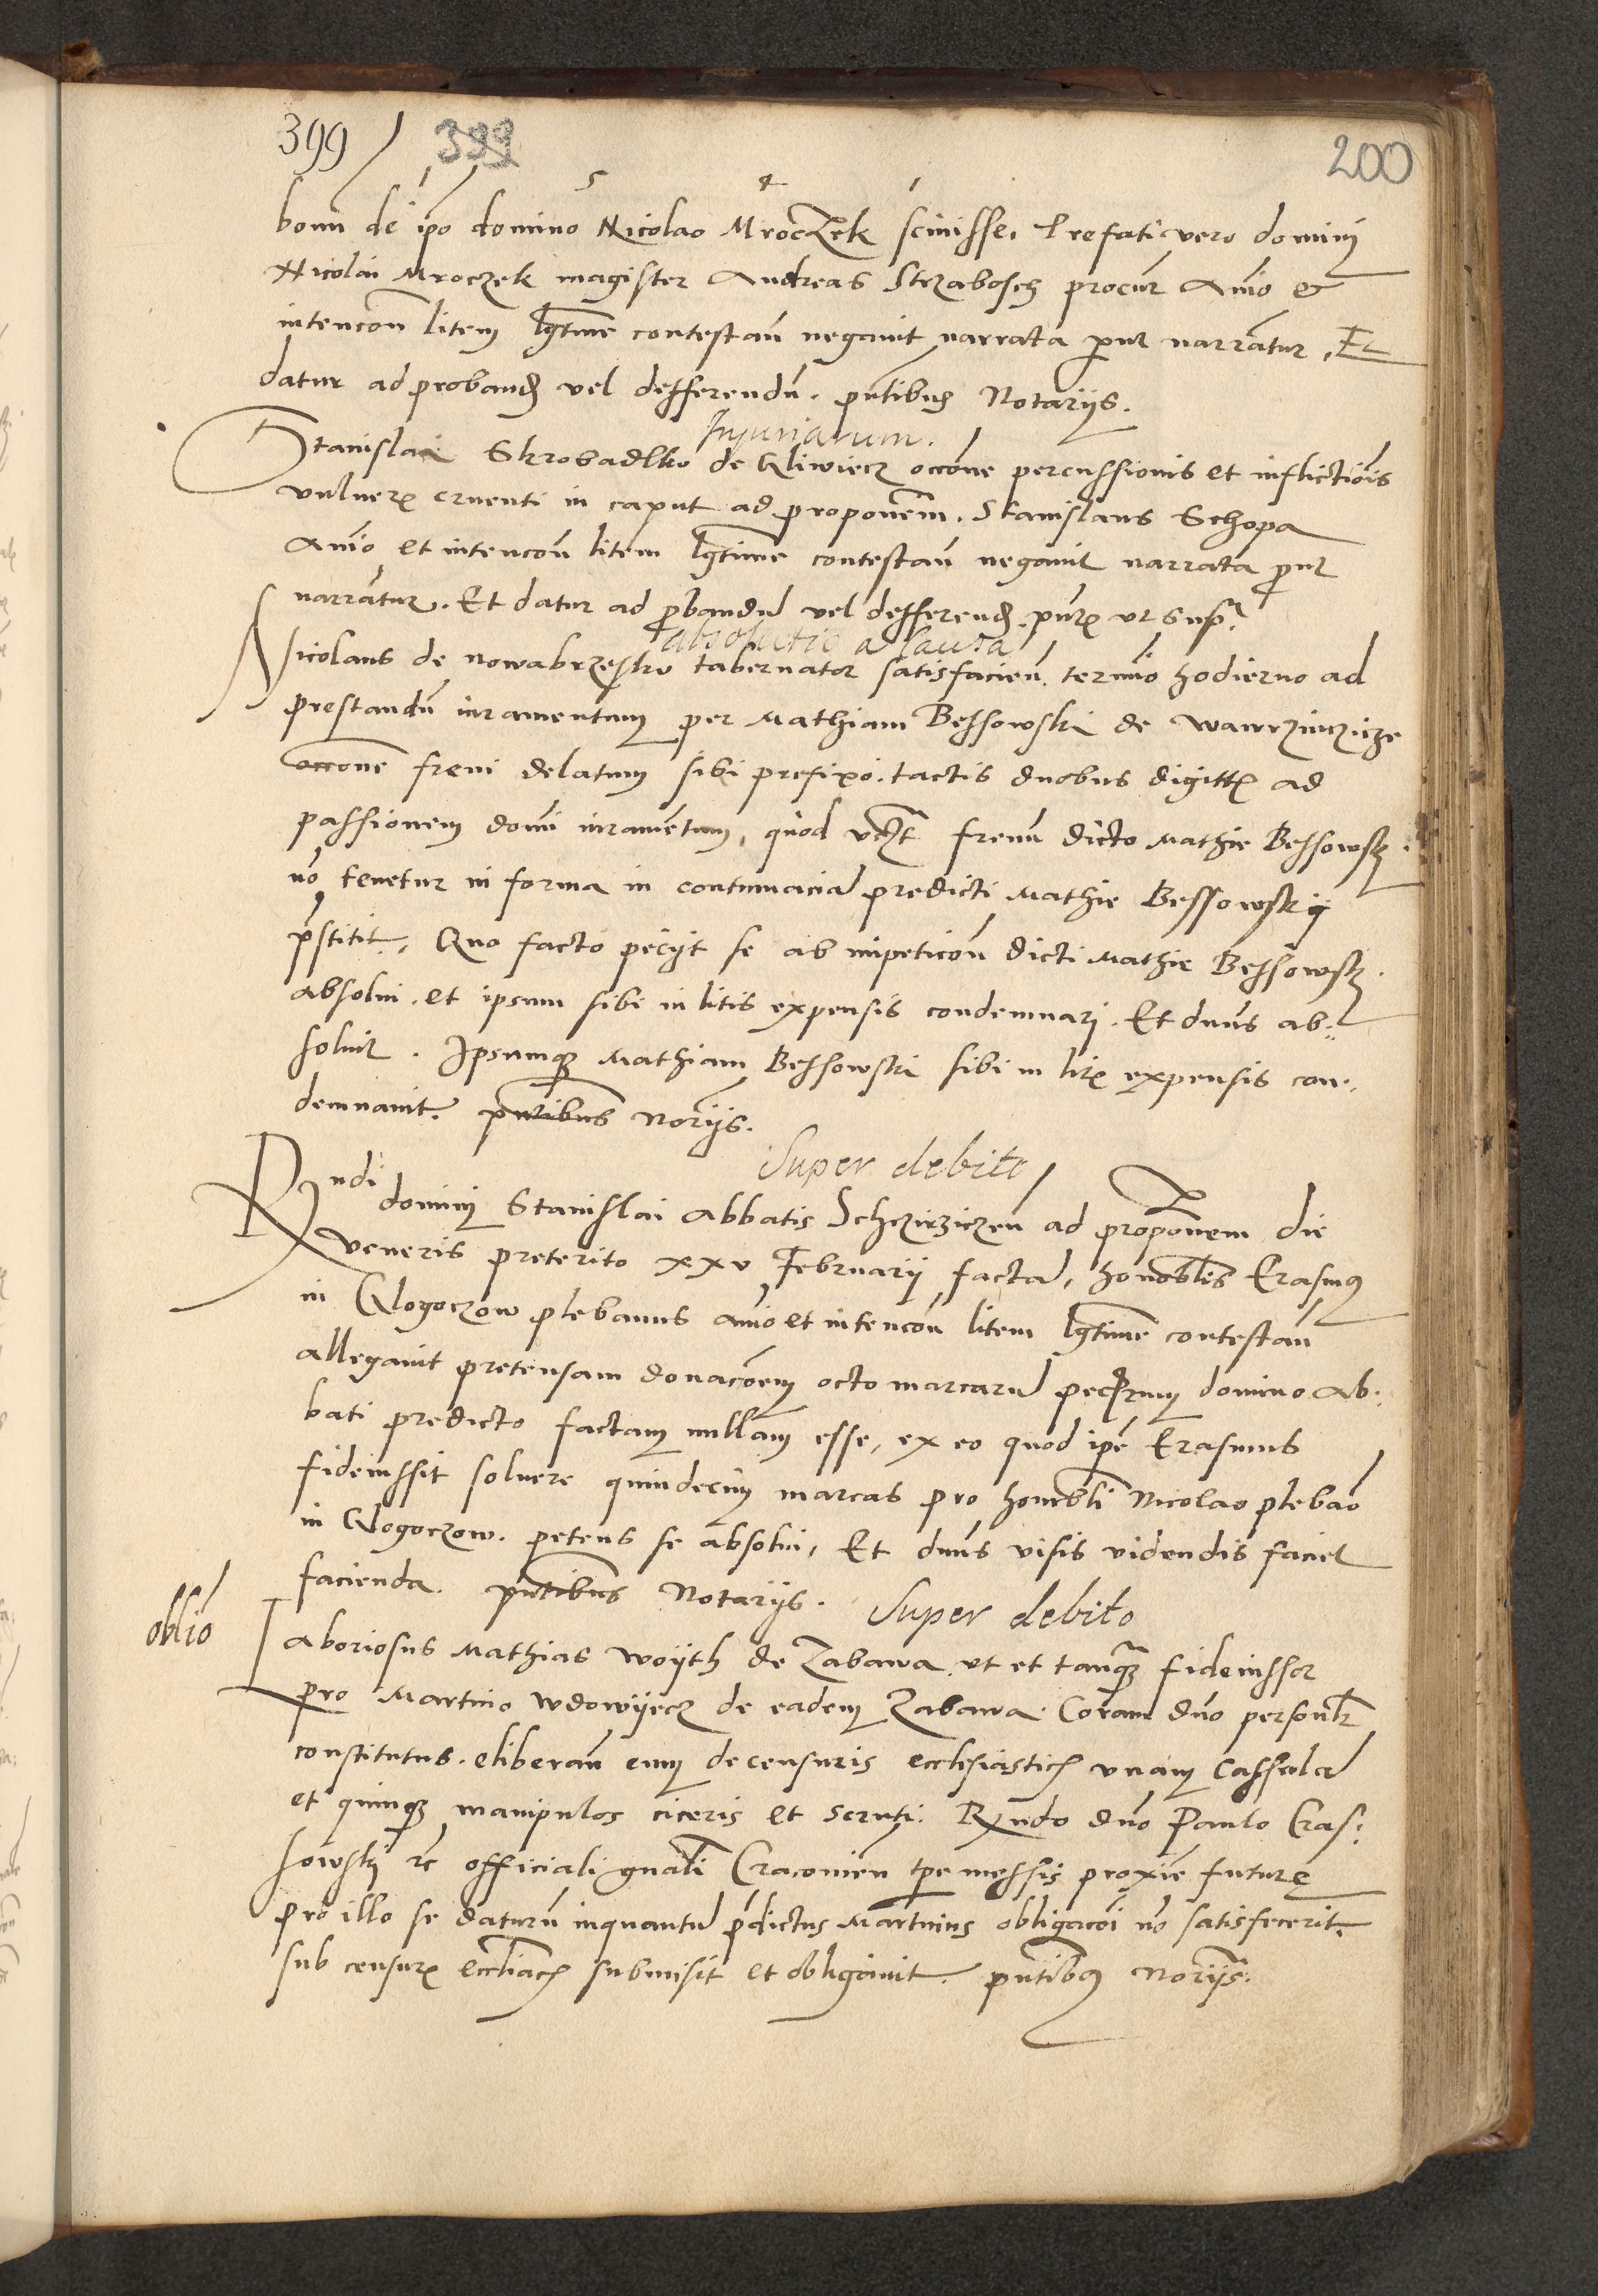 399 399 200
bonū de ip̄o domino Nicolao Mroczek scivisse. Prefati vero dominj
Nicolai Mroczek magister Andreas Strzabosch procur a͞nio et
intencōn litem l͞gtime contestan̄ negavit narrata pro͞ut narrātur. Et
datur ad probandū vel defferendū. pn̄tibus Notarijs.
Injuriarum.
Stanislai Skrobadlko de Gliwiecz occōne percussionis et inflictiōis
vulneris cruenti in caput ad propōnem. Stanislaus Schopa
a͞nio et intencōn litem l͞gtime contestan̄ negavit narrata pro͞ut
narrātur. Et datur ad probandū vel defferendū. pn̄tibus ut supr̄
absolutio a causa
Nicolaus de nowabrzesko tabernator satisfacien̄. termīo hodierno ad
prestandū iuramentum per Mathiam Bessowski de Wawrzinczicze
occōne freni delatum sibi prefixo. tactis duobus digitis ad
passionem domī iuramētum, quod frenū dicto Mathie Bessowskj.
nō tenetur in forma in contumaciā predicti Mathie Bessowskij
p̄stitit. Quo facto pecijt se ab impeticōn dicti Mathie Bessowskj.
absolvi. et ipsum sibi in litis expensis condemnarj. Et dn̄us ab=
solvit. Ipsumqʒ Mathiam Bessowski sibi in litis expensis con=
demnavit. pn̄tibus Nōrijs.
Super debito
Rndi dominj Stanislai Abbatis Schczirziczen̄ ad propōnem die
veneris preterito xxv Februarij factā, honorablīs Erasmus
in Glogoczow plebanus a͞nio et intencōn litem l͞gtime contestan̄
allegavit pretensam donacōem octo marcarū domino Ab=
bati predicto factam nullam esse, ex eo quod ip̄e Erasmus
fideiussit solvere quindecim marcas pro honorabli Nicolao plebāo
in Glogoczow. petens se absolvi, Et dn̄us visis videndis faciet
facienda. pn̄tibus Notarijs.
Super debito
oblīo
Laboriosus Mathias Woyth de Zabawa ut et tanqʒ fideiussor
pro Martino Wdowyecz de eadem Zabawa. Coram dn̄o personlr̄
constitutus. eliberan̄ eum de censuris ecclesiasticis unam cassulā
et quinqʒ manipulos ciceris et Rn̄do dn̄o Paulo Cras=
sowskj rc̄ officiali gn̄ali Cracovien̄ tp̄e messis proxīe future
pro illo se daturū inquantū p̄dictus Martinus obligacōi nō satisfecerit.
sub censuris ecclīacis submisit et obligavit. pn̄tibus Nōrijs.